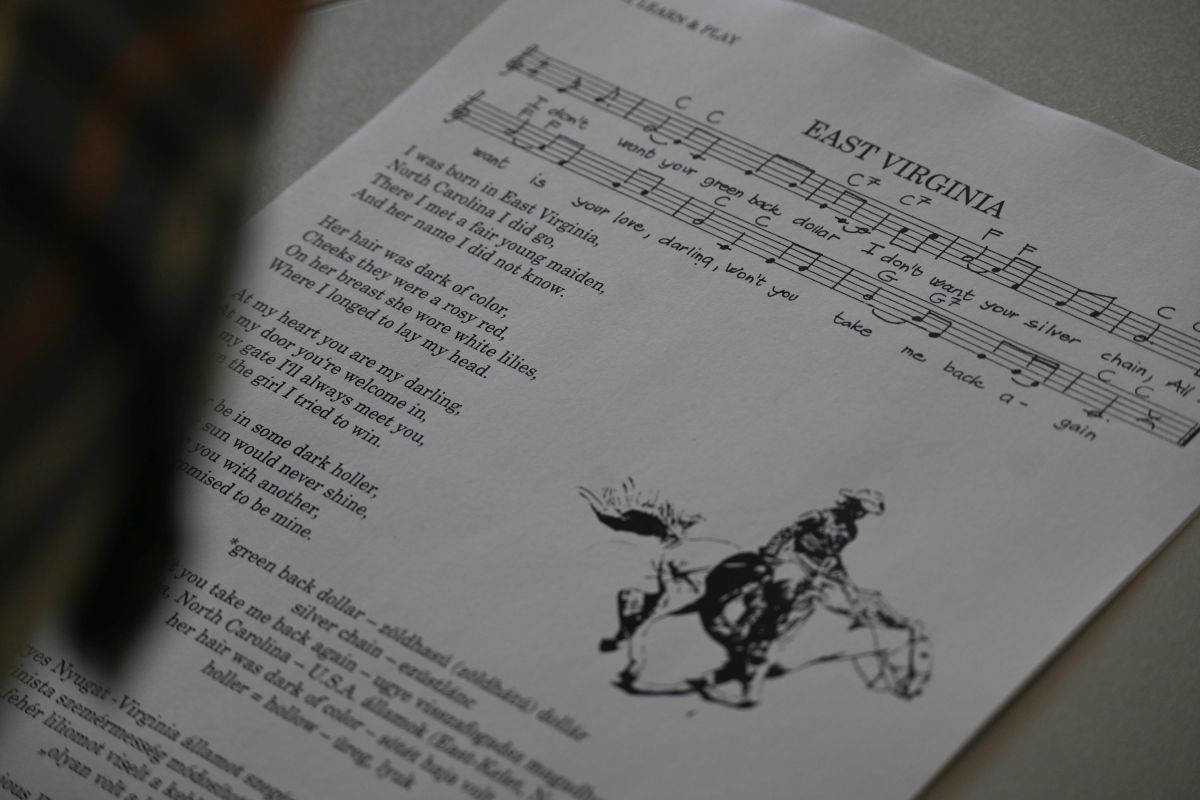 LEARN & PLAY
EAST VIRGINIA
C C C7 C7 F F C
I don't want your green back dollar I don't want your silver chain, All
F F C C G G7 C C
want is your love, darling, won't you take me back a- gain
I was born in East Virginia,
North Carolina I did go,
There I met a fair young maiden,
And her name I did not know.
Her hair was dark of color,
Cheeks they were a rosy red,
On her breast she wore white lilies,
Where I longed to lay my head.
At my heart you are my darling,
At my door you're welcome in,
my gate I'll always meet you,
the girl I tried to win.
be in some dark holler,
sun would never shine,
you with another,
to be mine.
*green back dollar – zöldhasú (zöldhátú) dollár
silver chain – ezüstlánc
you take me back again – ugye visszafogadna
North Carolina – U.S.A. államok (East-Kelet,
her hair was dark of color – sötét haja volt
holler = hollow – üreg, lyuk
Nyugat-Virginia államot
szemérmesség
fehér liliomot viselt a
„olyan volt a